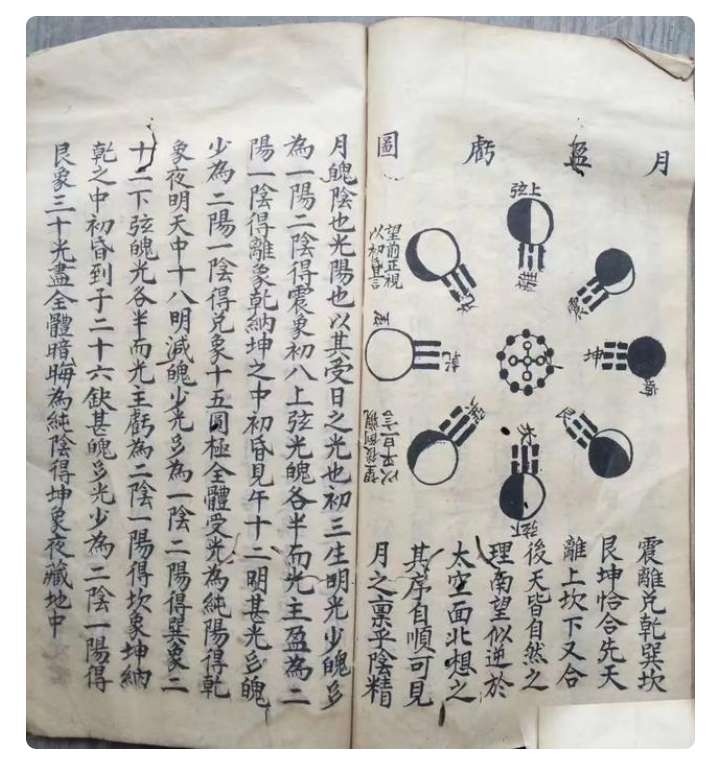 月盈虧圖
上弦
離
震
坤
晦
艮
坎
下弦
乾
望前正視
以初昏言
以平旦言
震離兌乾巽坎
艮坤恰合先天
離上坎下又合
後天皆自然之
理南望似逆於
太空面北想之
其序自順可見
月之禀乎陰精
月魄陰也光陽也以其受日之光也初三生明光少魄多
為一陽二陰得震象初八上弦光魄各半而光主盈為二
陽一陰得離象乾納坤之中初昏見午十二明甚光多魄
少為二陽一陰得兌象十五圓極全體受光為純陽得乾
象夜明天中十八明減魄少光多為一陰二陽得巽象二
十二下弦魄光各半而光主虧為二陰一陽得坎象坤納
乾之中初昏到子二十六缺甚魄多光少為二陰一陽得
艮象三十光盡全體暗晦為純陰得坤象夜藏地中